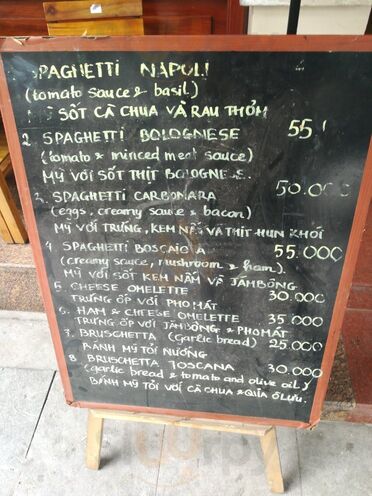 SPAGHETTI NAPOLI
(tomato sauce & basil)
SỐT CÀ CHUA VÀ RAU THƠM
2 SPAGHETTI BOLOGNESE 55
(tomato & minced meat sauce)
MỲ VỚI SỐT THỊT BOLOGNESE.
3. SPAGHETTI CARBONARA 50.000
(eggs, creamy sauce & bacon)
MỲ VỚI TRỨNG, KEM NẤM VÀ THỊT HUN KHÓI
4 SPAGHETTI BOSCAIOLA 55.000
(creamy sauce, mushroom & ham).
MỲ VỚI SỐT KEM NẤM VÀ JĂMBÔNG
5. CHEESE OMELETTE 30.000
TRỨNG ỐP VỚI PHOMÁT
6. HAM & CHEESE OMELETTE 35 000
TRỨNG ỐP VỚI JĂMBÔNG & PHOMÁT
7. BRUSCHETTA (garlic bread) 25.000
BÁNH MỲ TỎI NƯỚNG
8 BRUSCHETTA TOSCANA 30.000
(garlic bread & tomato and olive oil)
BÁNH MỲ TỎI VỚI CÀ CHUA & QUẢ ÔLIU.